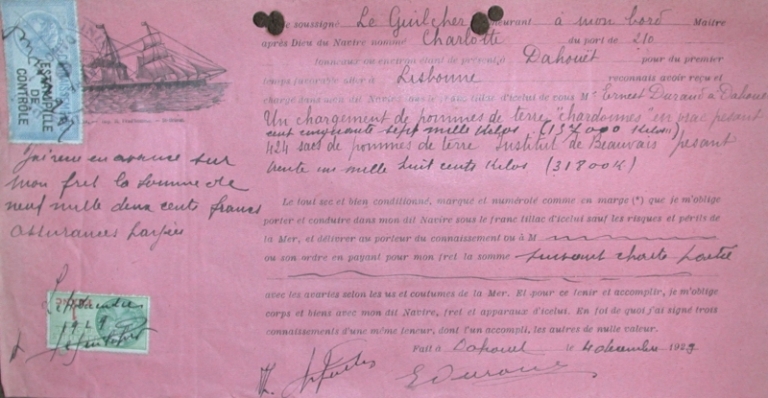 Je soussigné Le Guilcher demeurant à mon bord Maître
après Dieu du Navire nommé Charlotte du port de 210
tonneaux ou environ étant de présent à Dahouët pour du premier
temps favorable aller à Lisbonne reconnais avoir reçu et
chargé dans mon dit Navire sous le franc tillac d'icelui de vous Mr Ernest Durand à Dahouet
Un chargement de pommes de terre "chardonnes" en sac pesant
cent cinquante sept mille kilos (157000 kilos)
424 sacs de pommes de terre Institut de Beauvais pesant
trente un mille huit cents kilos (31800 K)
Le tout sec et bien conditionné, marqué et numéroté comme en marge (*) que je m'oblige
porter et conduire dans mon dit Navire sous le franc tillac d'icelui sauf les risques et périls de
la Mer, et délivrer au porteur du connaissement ou à M
ou son ordre en payant pour mon fret la somme suivant charte partie
avec les avaries selon les us et coutumes de la Mer. Et pour ce tenir et accomplir, je m'oblige
corps et biens avec mon dit Navire, fret et apparaux d'icelui. En foi de quoi j'ai signé trois
connaissements d'une même teneur, dont l'un accompli, les autres de nulle valeur.
Fait à Dahouet le 4 décembre 1929
E Durand
ESTAMPILLE
DE
CONTRÔLE
J'ai reçu en avance sur
mon fret la somme de
neuf mille deux cents francs
assurances
1929